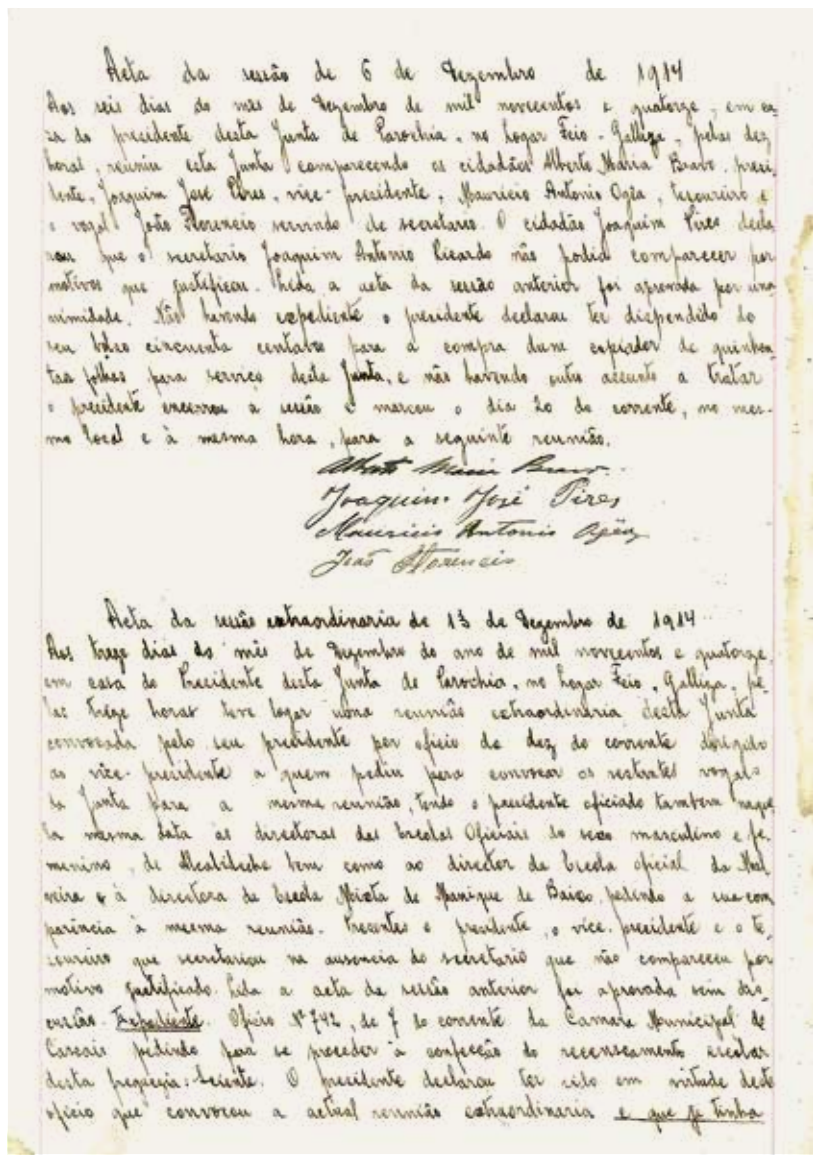 Acta da sessão de 6 de Dezembro de 1914
Aos seis dias do mês de Dezembro de mil novecentos e quatorze, em ca-
za do presidente desta Junta de Parochia, no logar Feio - Galliza, pelas dez
horas, reuniu esta Junta comparecendo os cidadãos Alberto Maria Bravo, presi-
dente, Joaquim José Pires, vice-presidente, Mauricio Antonio Ogêa, tesoureiro e
o vogal João Florencio servindo de secretario. O cidadão Joaquim Pires decla-
rou que o secretario Joaquim Antonio Ricardo não podia comparecer por
motivos que justificou. Lida a acta da sessão anterior foi aprovada por una-
nimidade. Não havendo expediente o presidente declarou ter dispendido do
seu bolso cincuenta centabos para a compra dum copiador de quinhen-
tas folhas para serviço desta Junta, e não havendo outro assunto a tratar
o presidente encerrou a sessão e marcou o dia 20 do corrente, no mes-
mo local e à mesma hora, para a seguinte reunião.
Alberto Maria Bravo
Joaquim José Pires
Mauricio Antonio Ogêa
João Florencio
Acta da sessão extraordinaria de 13 de Dezembro de 1914
Aos treze dias do mês de Dezembro do ano de mil novecentos e quatorze,
em casa do Presidente desta Junta de Parochia, no logar Feio, Galliza, pe-
las treze horas teve logar uma reunião extraordinaria desta Junta
convocada pelo seu presidente por oficio de dez do corrente dirigido
ao vice-presidente a quem pediu para convocar os restantes vogais
da Junta para a mesma reunião, tendo o presidente oficiado tambem naque-
la mesma data às directoras das Escolas Oficiais do sexo masculino e fe-
menino, de Alcabideche bem como ao director da Escola oficial da Mal-
veira e à directora da Escola Mixta de Manique de Baixo, pedindo a sua com-
parência à mesma reunião. Presentes o presidente, o vice-presidente e o te-
soureiro que secretariou na ausencia do secretario que não compareceu por
motivo justificado. Lida a acta da sessão anterior foi aprovada sem dis-
cussão. Expediente. Oficio Nº 742, de 7 do corrente da Camara Municipal de
Cascais pedindo para se proceder à confecção do recenseamento escolar
desta freguezia: Sciente. O presidente declarou ter sido em virtude deste
oficio que convocou a actual reunião extraordinaria e que já tinha